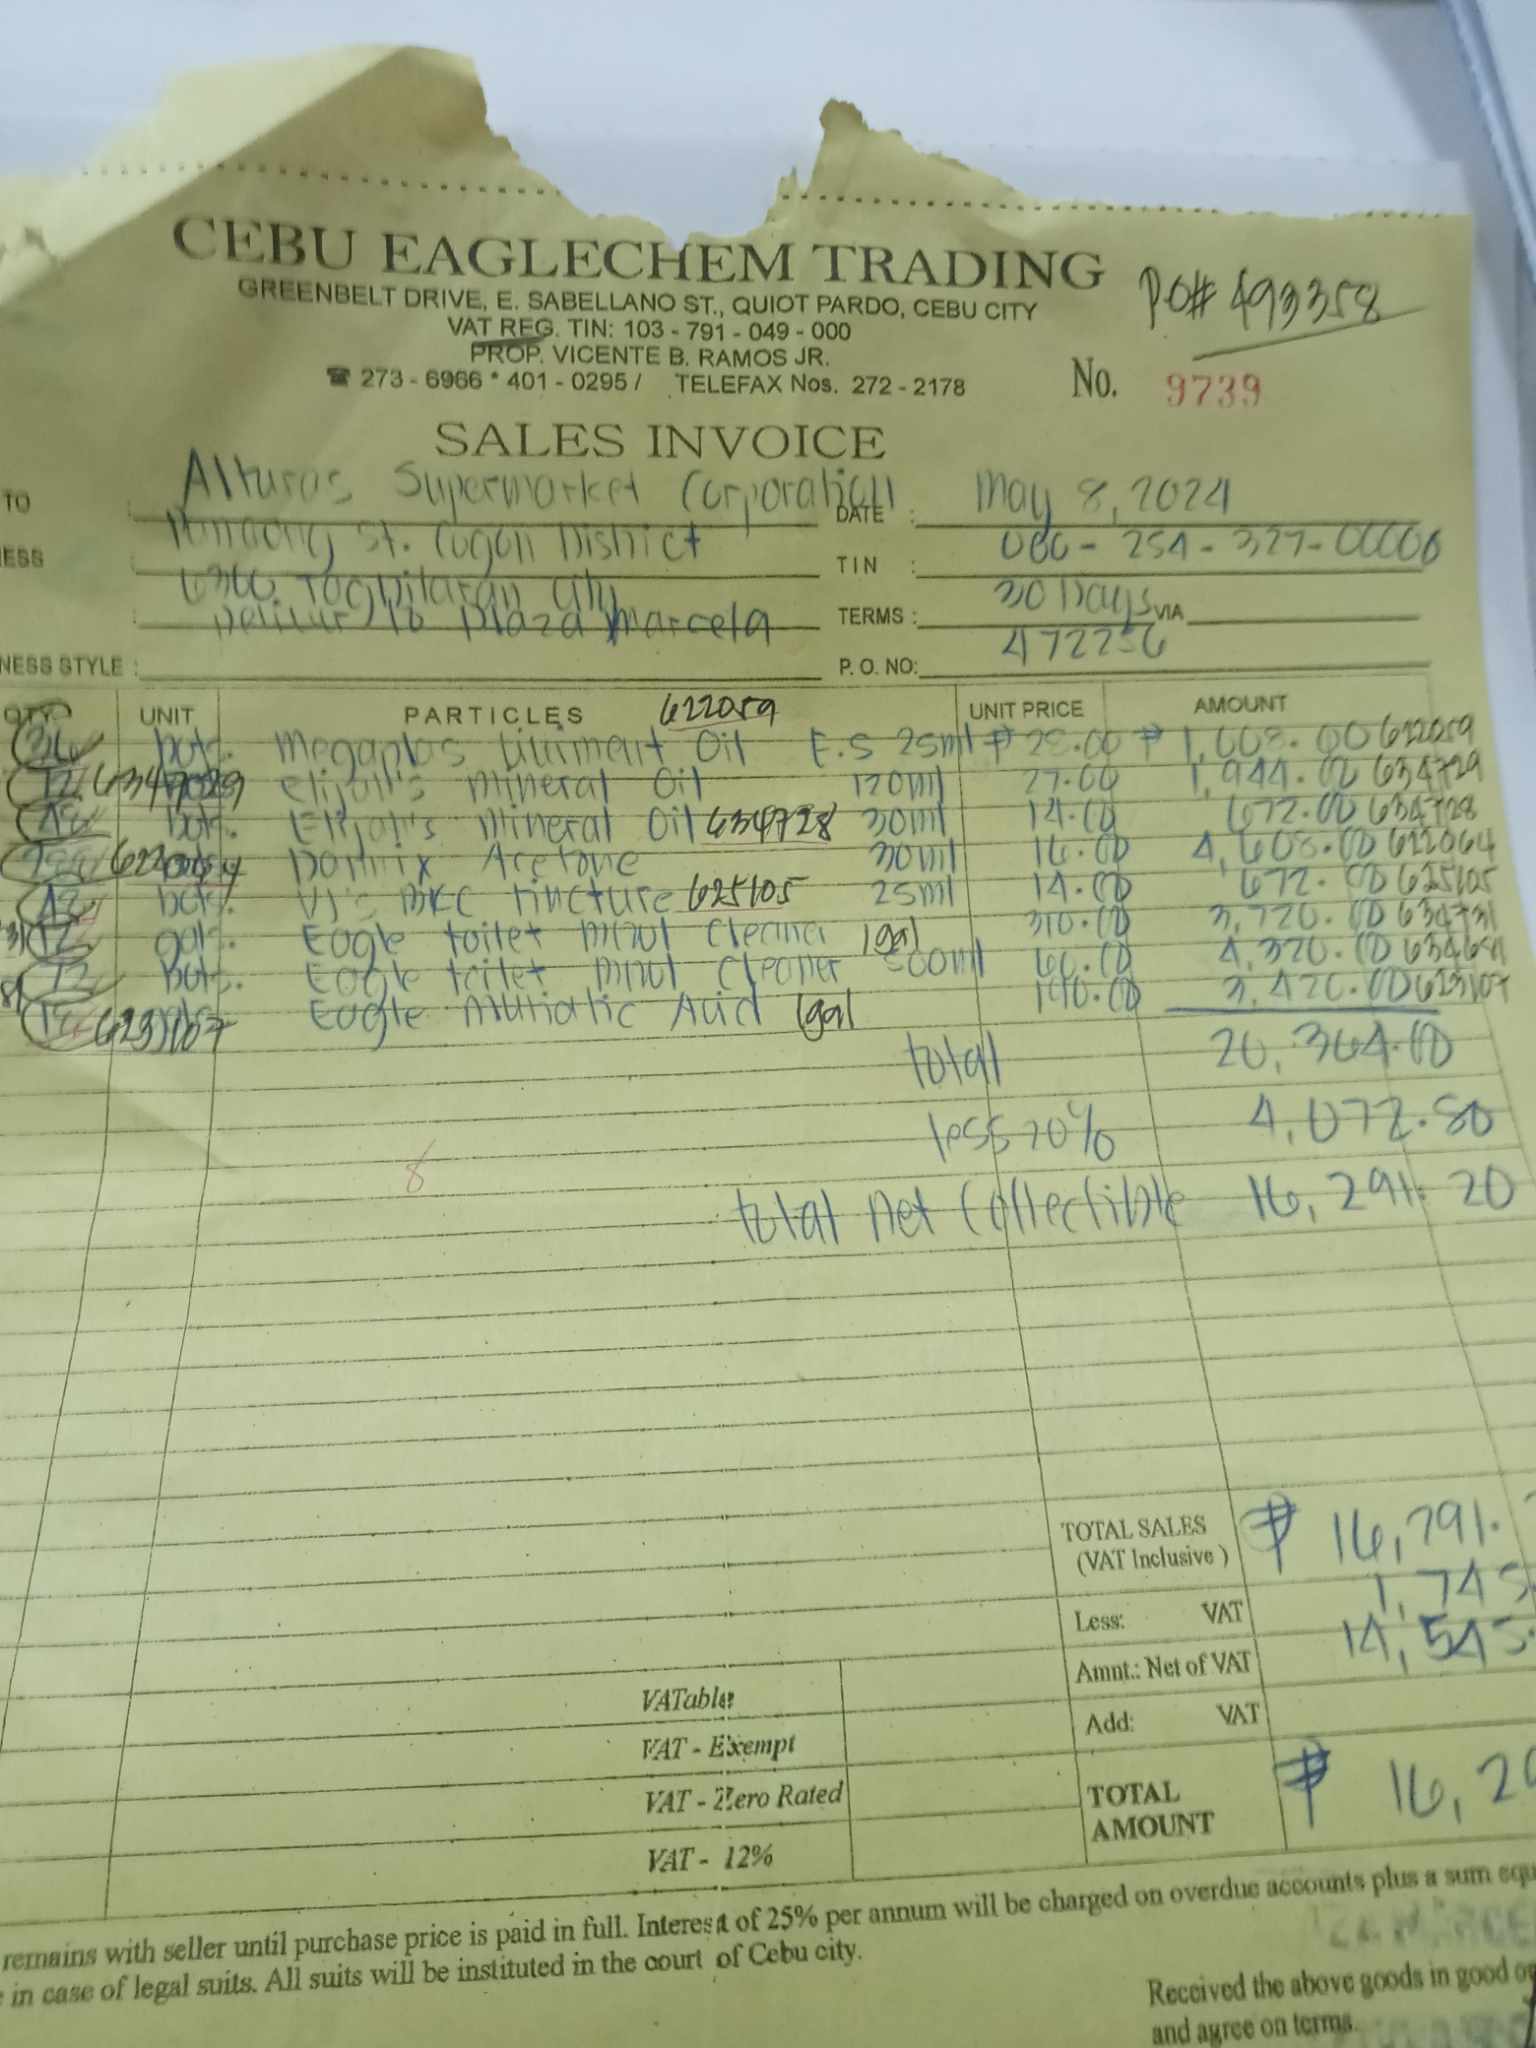 CEBU EAGLECHEM TRADING
GREENBELT DRIVE, E. SABELLANO ST., QUIOT PARDO, CEBU CITY
PO# 493358
VAT REG. TIN: 103 - 791 - 049 - 000
PROP. VICENTE B. RAMOS JR.
☎ 273 - 6966 * 401 - 0295 / TELEFAX Nos. 272 - 2178
No. 9739
SALES INVOICE
TO Alturas Supermarket Corporation DATE : May 8, 2024
ESS St. Cogon District TIN : 254 - 327 -
City TERMS : 30 Days VIA
Plaza Marcela P. O. NO:
NESS STYLE :
QTY. UNIT PARTICLES 622059 UNIT PRICE AMOUNT
36 bots. Megaplas Liniment Oil E.S 25ml ₱ 28.00 ₱ 1,008.00 622059
72 634729 Elijah's Mineral Oil 120ml 27.00 1,944.00 634729
48 bots. Elijah's Mineral Oil 634728 30ml 14.00 672.00 634728
622064 Acetone 30ml 16.00 4,608.00 622064
48 bots. Tincture 625105 25ml 14.00 672.00 625105
12 gals. Eagle toilet Cleaner 1gal 310.00 3,720.00 634731
72 bots. Eagle toilet Cleaner 500ml 60.00 4,320.00
18 623107 Eagle Muriatic Acid 1gal 190.00 3,420.00 623107
total 20,364.00
less 20% 4,072.80
8
total Net Collectible 16,291.20
TOTAL SALES ₱ 16,291.
(VAT Inclusive )
Less: VAT 1,745
Amnt.: Net of VAT 14,545.
VATable
Add: VAT
VAT - Exempt
VAT - Zero Rated
TOTAL AMOUNT ₱ 16,29
VAT - 12%
remains with seller until purchase price is paid in full. Interest of 25% per annum will be charged on overdue accounts plus a sum equ
in case of legal suits. All suits will be instituted in the court of Cebu city.
Received the above goods in good
and agree on terms.